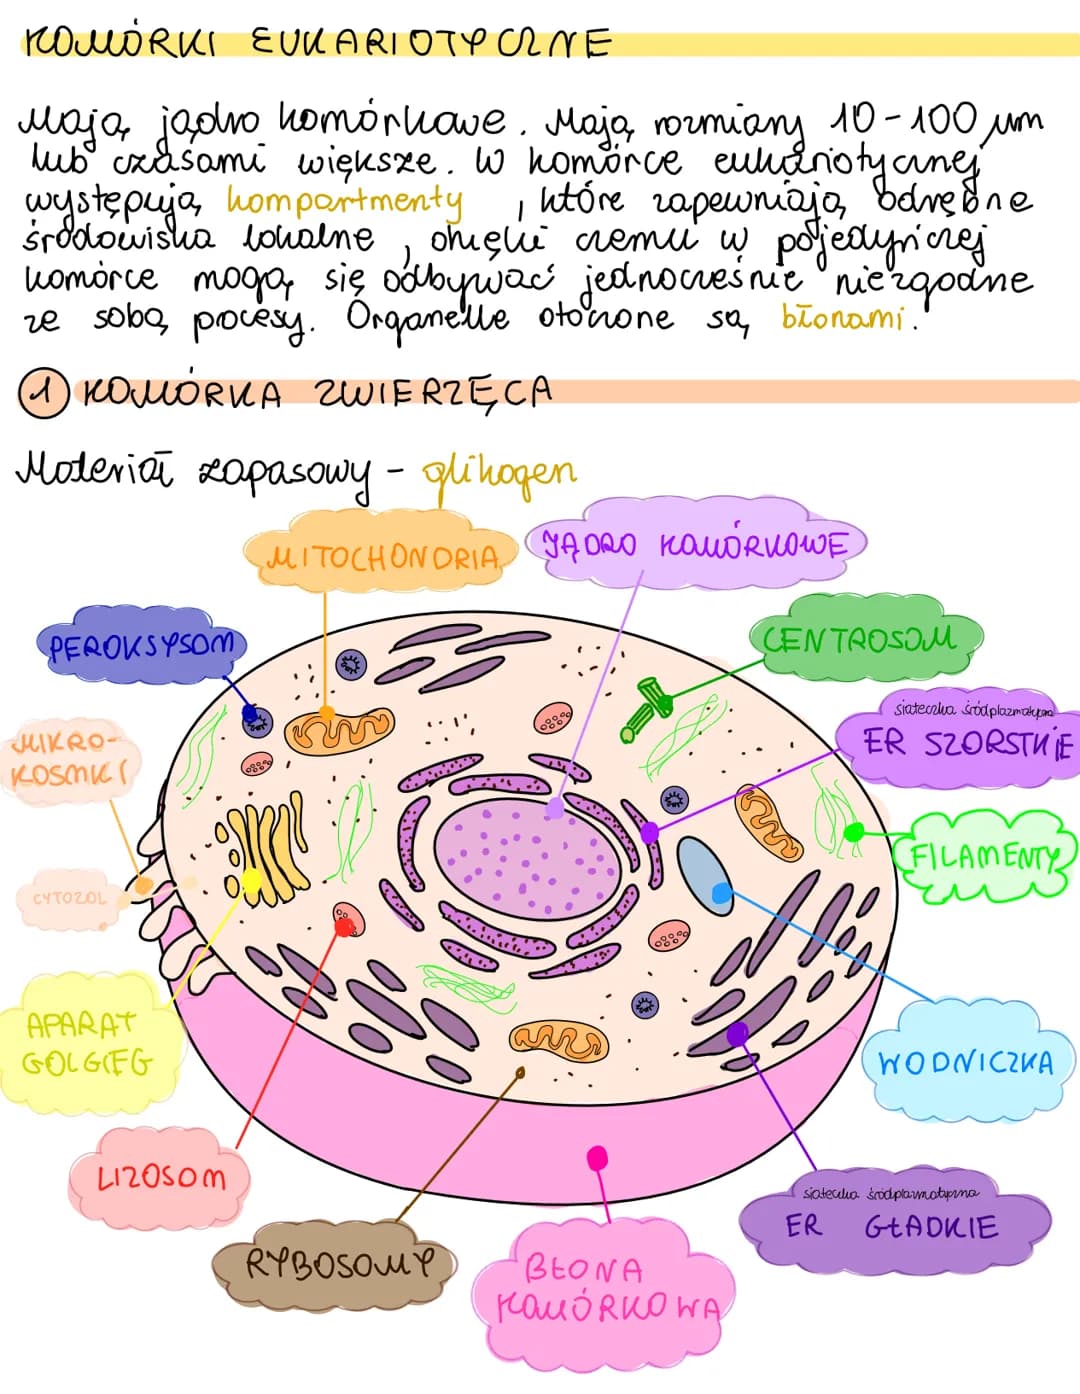 KOMÓRKI EUKARIOTYCZNE
Mają jądro komórkowe. Mają rozmiary 10-100 µm
lub czasami większe. W komórce eukariotycznej
występują kompartmenty , które zapewniają odrębne
środowiska lokalne , dzięki czemu w pojedyńczej
komórce mogą się odbywać jednocześnie niezgodne
ze sobą procesy. Organelle otoczone są błonami.
1 KOMÓRKA ZWIERZĘCA
Materiał zapasowy - glikogen
MITOCHONDRIA
JĄDRO KOMÓRKOWE
PEROKSYSOM
CENTROSOM
siateczka śródplazmatyczna
ER SZORSTKIE
MIKRO-
KOSMKI
FILAMENTY
CYTOZOL
APARAT
GOLGIEG
WODNICZKA
LIZOSOM
siateczka śródplazmatyczna
ER GŁADKIE
RYBOSOMY
BŁONA
KOMÓRKOWA